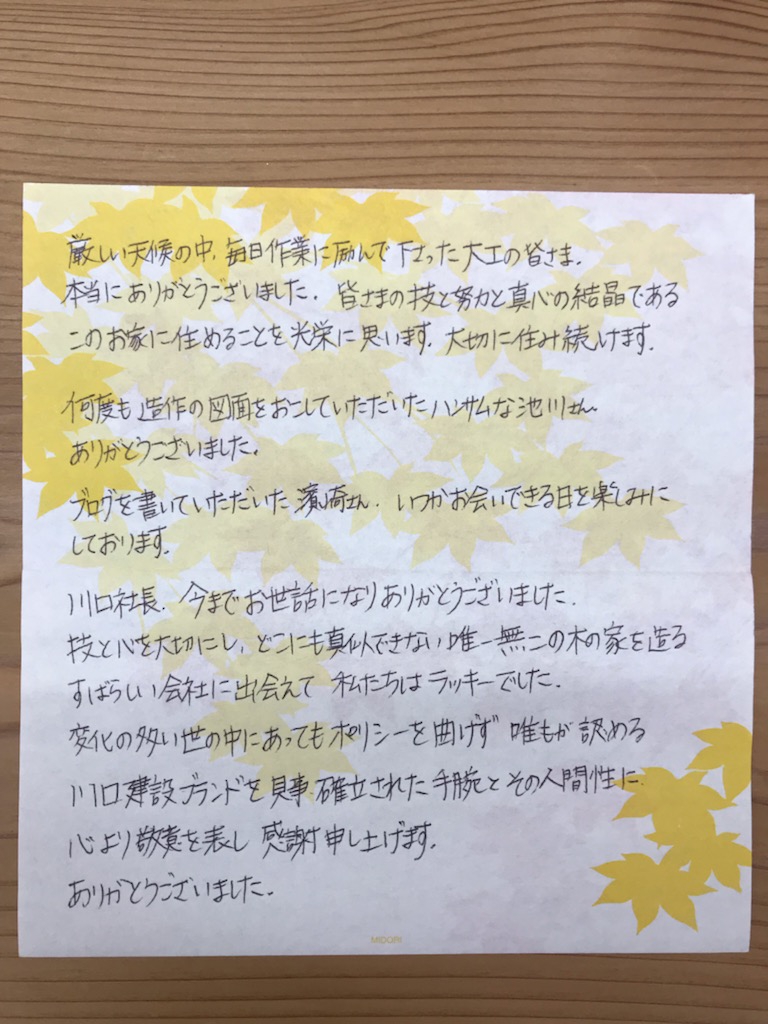 厳しい天候の中、毎日作業に励んで下さった大工の皆さま、
本当にありがとうございました。皆さまの技と努力と真心の結晶である
このお家に住めることを光栄に思います。大切に住み続けます。
何度も造作の図面をおこしていただいたハンサムな池川さん
ありがとうございました。
ブログを書いていただいた濱崎さん、いつかお会いできる日を楽しみに
しております。
川口社長、今までお世話になりありがとうございました。
技と心を大切にし、どこにも真似できない唯一無二の木の家を造る
すばらしい会社に出会えて私たちはラッキーでした。
変化の多い世の中にあってもポリシーを曲げず唯もが認める
川口建設ブランドを見事、確立された手腕とその人間性に
心より敬意を表し感謝申し上げます。
ありがとうございました。
MIDORI